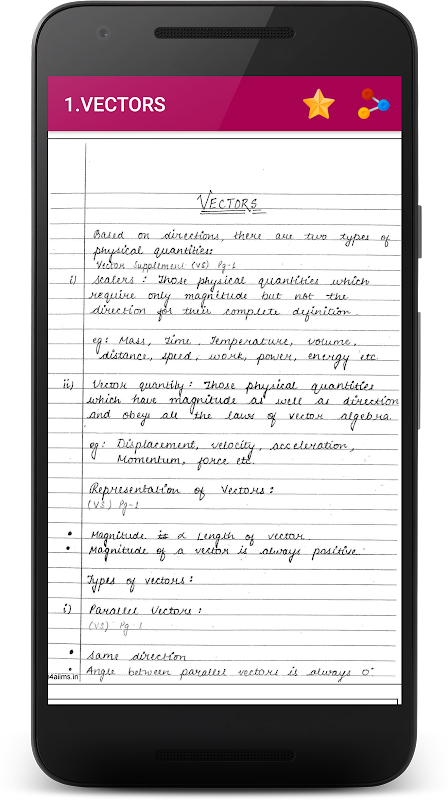 1.VECTORS
VECTORS
Based on directions, there are two types of
physical quantities:
Vector Supplement (VS) Pg-1
i) Scalers : Those physical quantities which
require only magnitude but not the
direction for their complete definition.
eg: Mass, Time, Temperature, volume,
distance, speed, work, power, energy etc.
ii) Vector quantity : Those physical quantities
which have magnitude as well as direction
and obeys all the laws of vector algebra.
eg: Displacement, velocity, acceleration,
Momentum, force etc.
Representation of Vectors :
(VS) Pg-1
• Magnitude is α Length of vector.
• Magnitude of a vector is always positive.
Types of vectors :
i) Parallel Vectors :
(VS) Pg-1
• Same direction
• Angle between parallel vectors is always 0°
4aiims.in